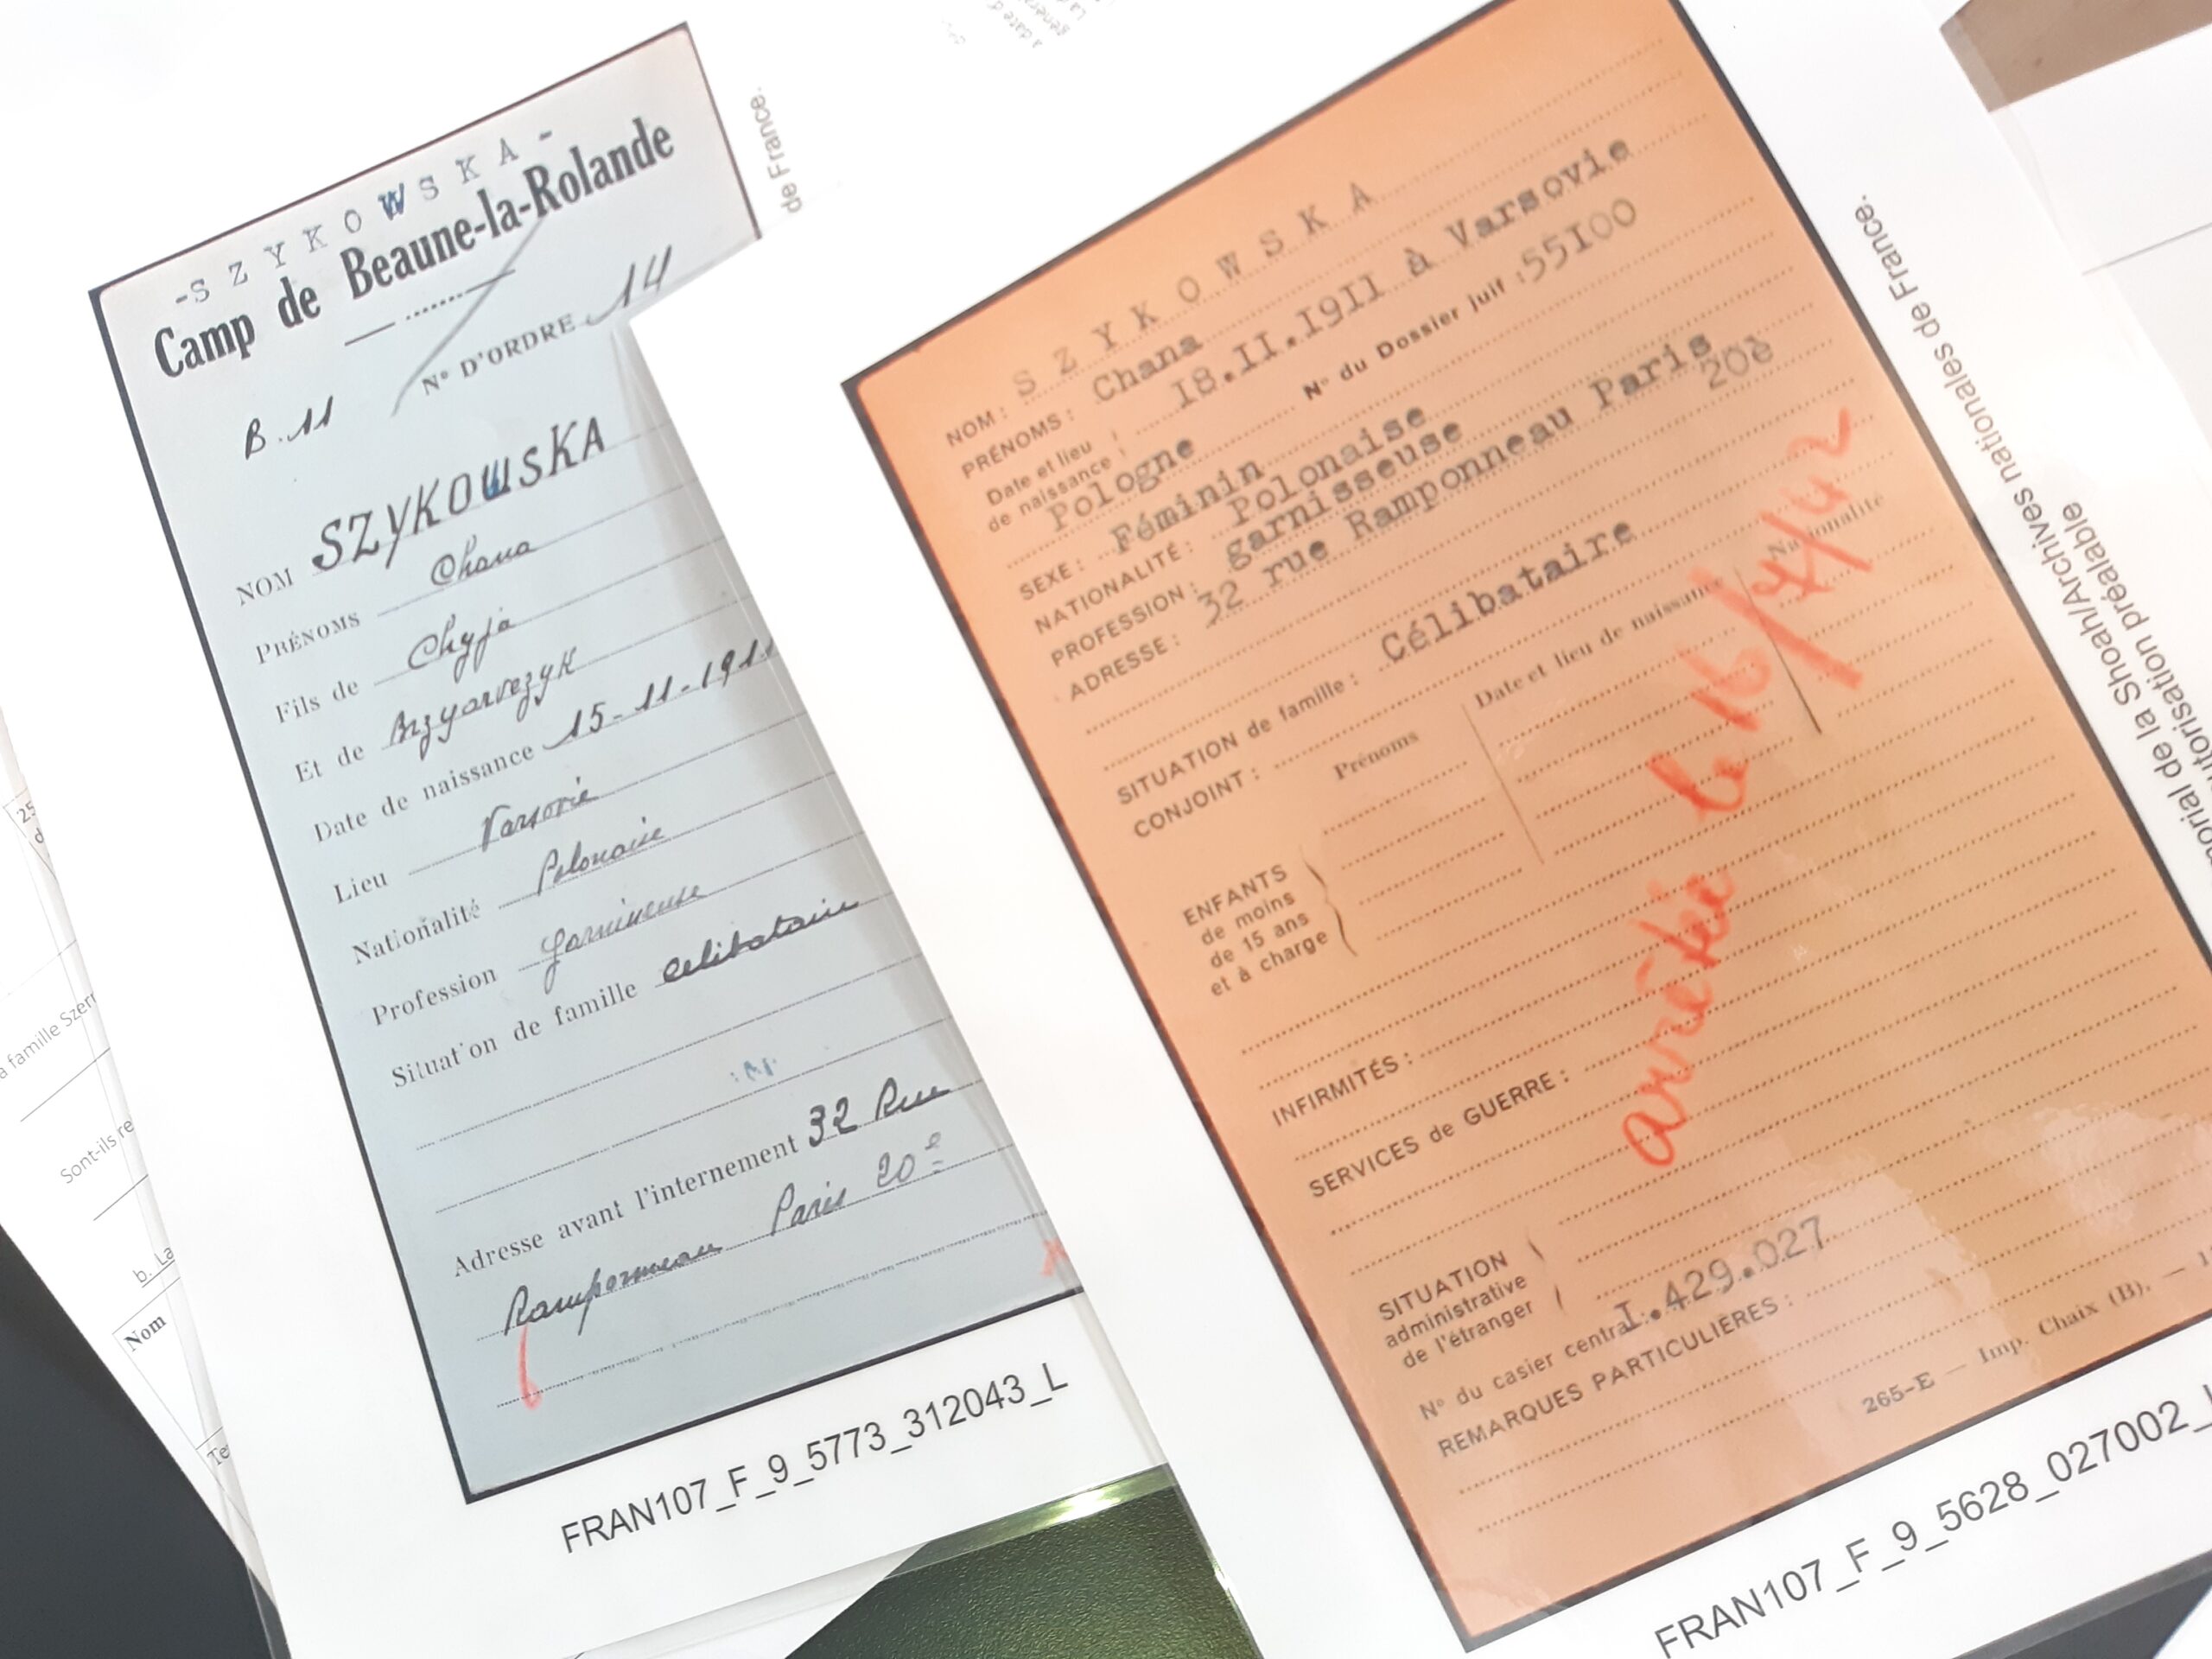 -SZYKOWSKA-
Camp de Beaune-la-Rolande
N° D'ORDRE 14
B.11
NOM SZYKOWSKA
PRÉNOMS Chana
Fils de Chyja
Et de
Date de naissance 15-11-1911
Lieu Varsovie
Nationalité Polonaise
Profession
Situation de famille celibataire
Adresse avant l'internement 32 Rue
Ramponneau Paris 20e
FRAN107_F_9_5773_312043_L
de France.
NOM : SZYKOWSKA
PRÉNOMS : Chana
Date et lieu de naissance : I8.II.I9II à Varsovie
Pologne N° du Dossier juif : 55I00
SEXE : Féminin
NATIONALITÉ : Polonaise
PROFESSION : garnisseuse
ADRESSE : 32 rue Ramponneau Paris
20è
SITUATION de famille : Célibataire
CONJOINT :
Prénoms Date et lieu de naissance Nationalité
ENFANTS
de moins
de 15 ans
et à charge
arrêtée le 16/7/42
INFIRMITÉS :
SERVICES de GUERRE :
SITUATION
administrative
de l'étranger
N° du casier central : I.429.027
REMARQUES PARTICULIÈRES :
265-E — Imp. Chaix (B). —
FRAN107_F_9_5628_027002_
morial de la Shoah/Archives nationales de France.
utorisation préalable
a famille Szer
Sont-ils re
b. La
Nom
Te
25